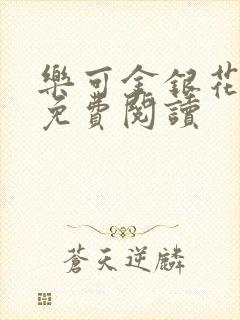 樂可金銀花
免費閱讀
蒼天逆麟